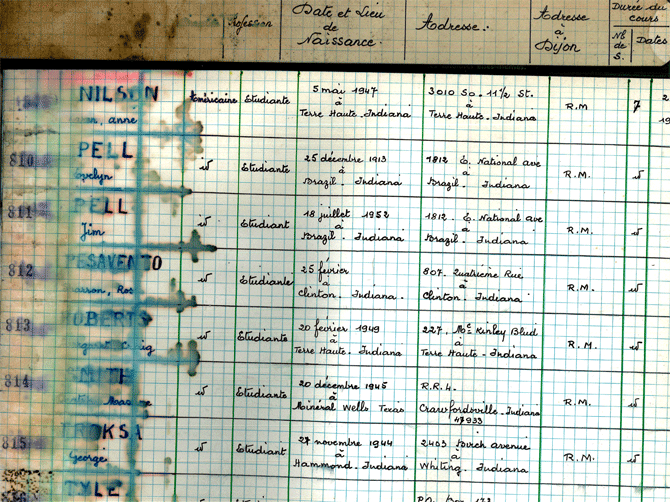 Profession
Date et Lieu
de
Naissance.
Adresse:
Adresse
à
Dijon
Durée du
cours
Nb
de
S.
Dates
NILSON
anne
Américaine
Etudiante
5 mai 1947
à
Terre Haute. Indiana
3010 So. 11½ St.
à
Terre Haute. Indiana
R.M
7
2
19
810
PELL
id
Etudiante
25 décembre 1913
à
Brazil. Indiana
1812 E. National Ave
à
Brazil. Indiana
R.M.
id
811
PELL
Jim
id
Etudiant
18 juillet 1952
à
Brazil. Indiana
1812. E. National Ave
à
Brazil. Indiana
R.M.
id
812
PESAVENTO
id
Etudiante
25 février
à
Clinton. Indiana.
807. Quatrième Rue
à
Clinton. Indiana
R.M.
id
813
ROBERTS
id
Etudiante
20 février 1949
à
Terre Haute. Indiana
227. Mc Kinley Blvd
à
Terre Haute. Indiana
R.M.
id
814
id
Etudiante
20 décembre 1945
à
Minéral Wells Texas
R.R.4.
à
Crawfordsville. Indiana
47933
R.M.
id
815
TROKSA
George
id
Etudiant
27 novembre 1944
à
Hammond. Indiana
2403 Birch avenue
à
Whiting. Indiana
R.M.
id